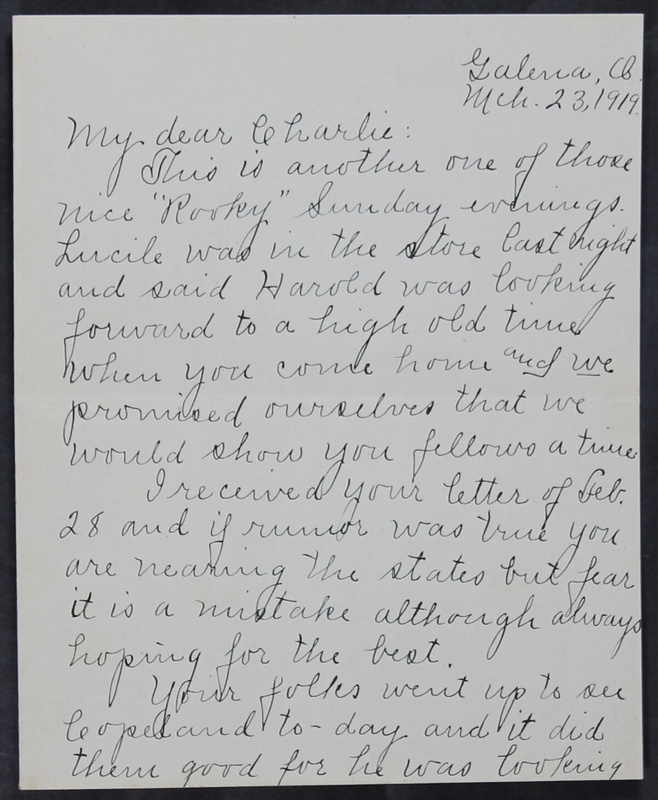 Galena, O.
Mch. 23, 1919.
My dear Charlie:
This is another one of those
nice "Rooky" Sunday evenings.
Lucile was in the store last night
and said Harold was looking
forward to a high old time
when you come home and we
promised ourselves that we
would show you fellows a time.
I received your letter of Feb.
28 and if rumor was true you
are nearing the states but fear
it is a mistake although always
hoping for the best.
Your folks went up to see
Copeland to-day and it did
them good for he was looking